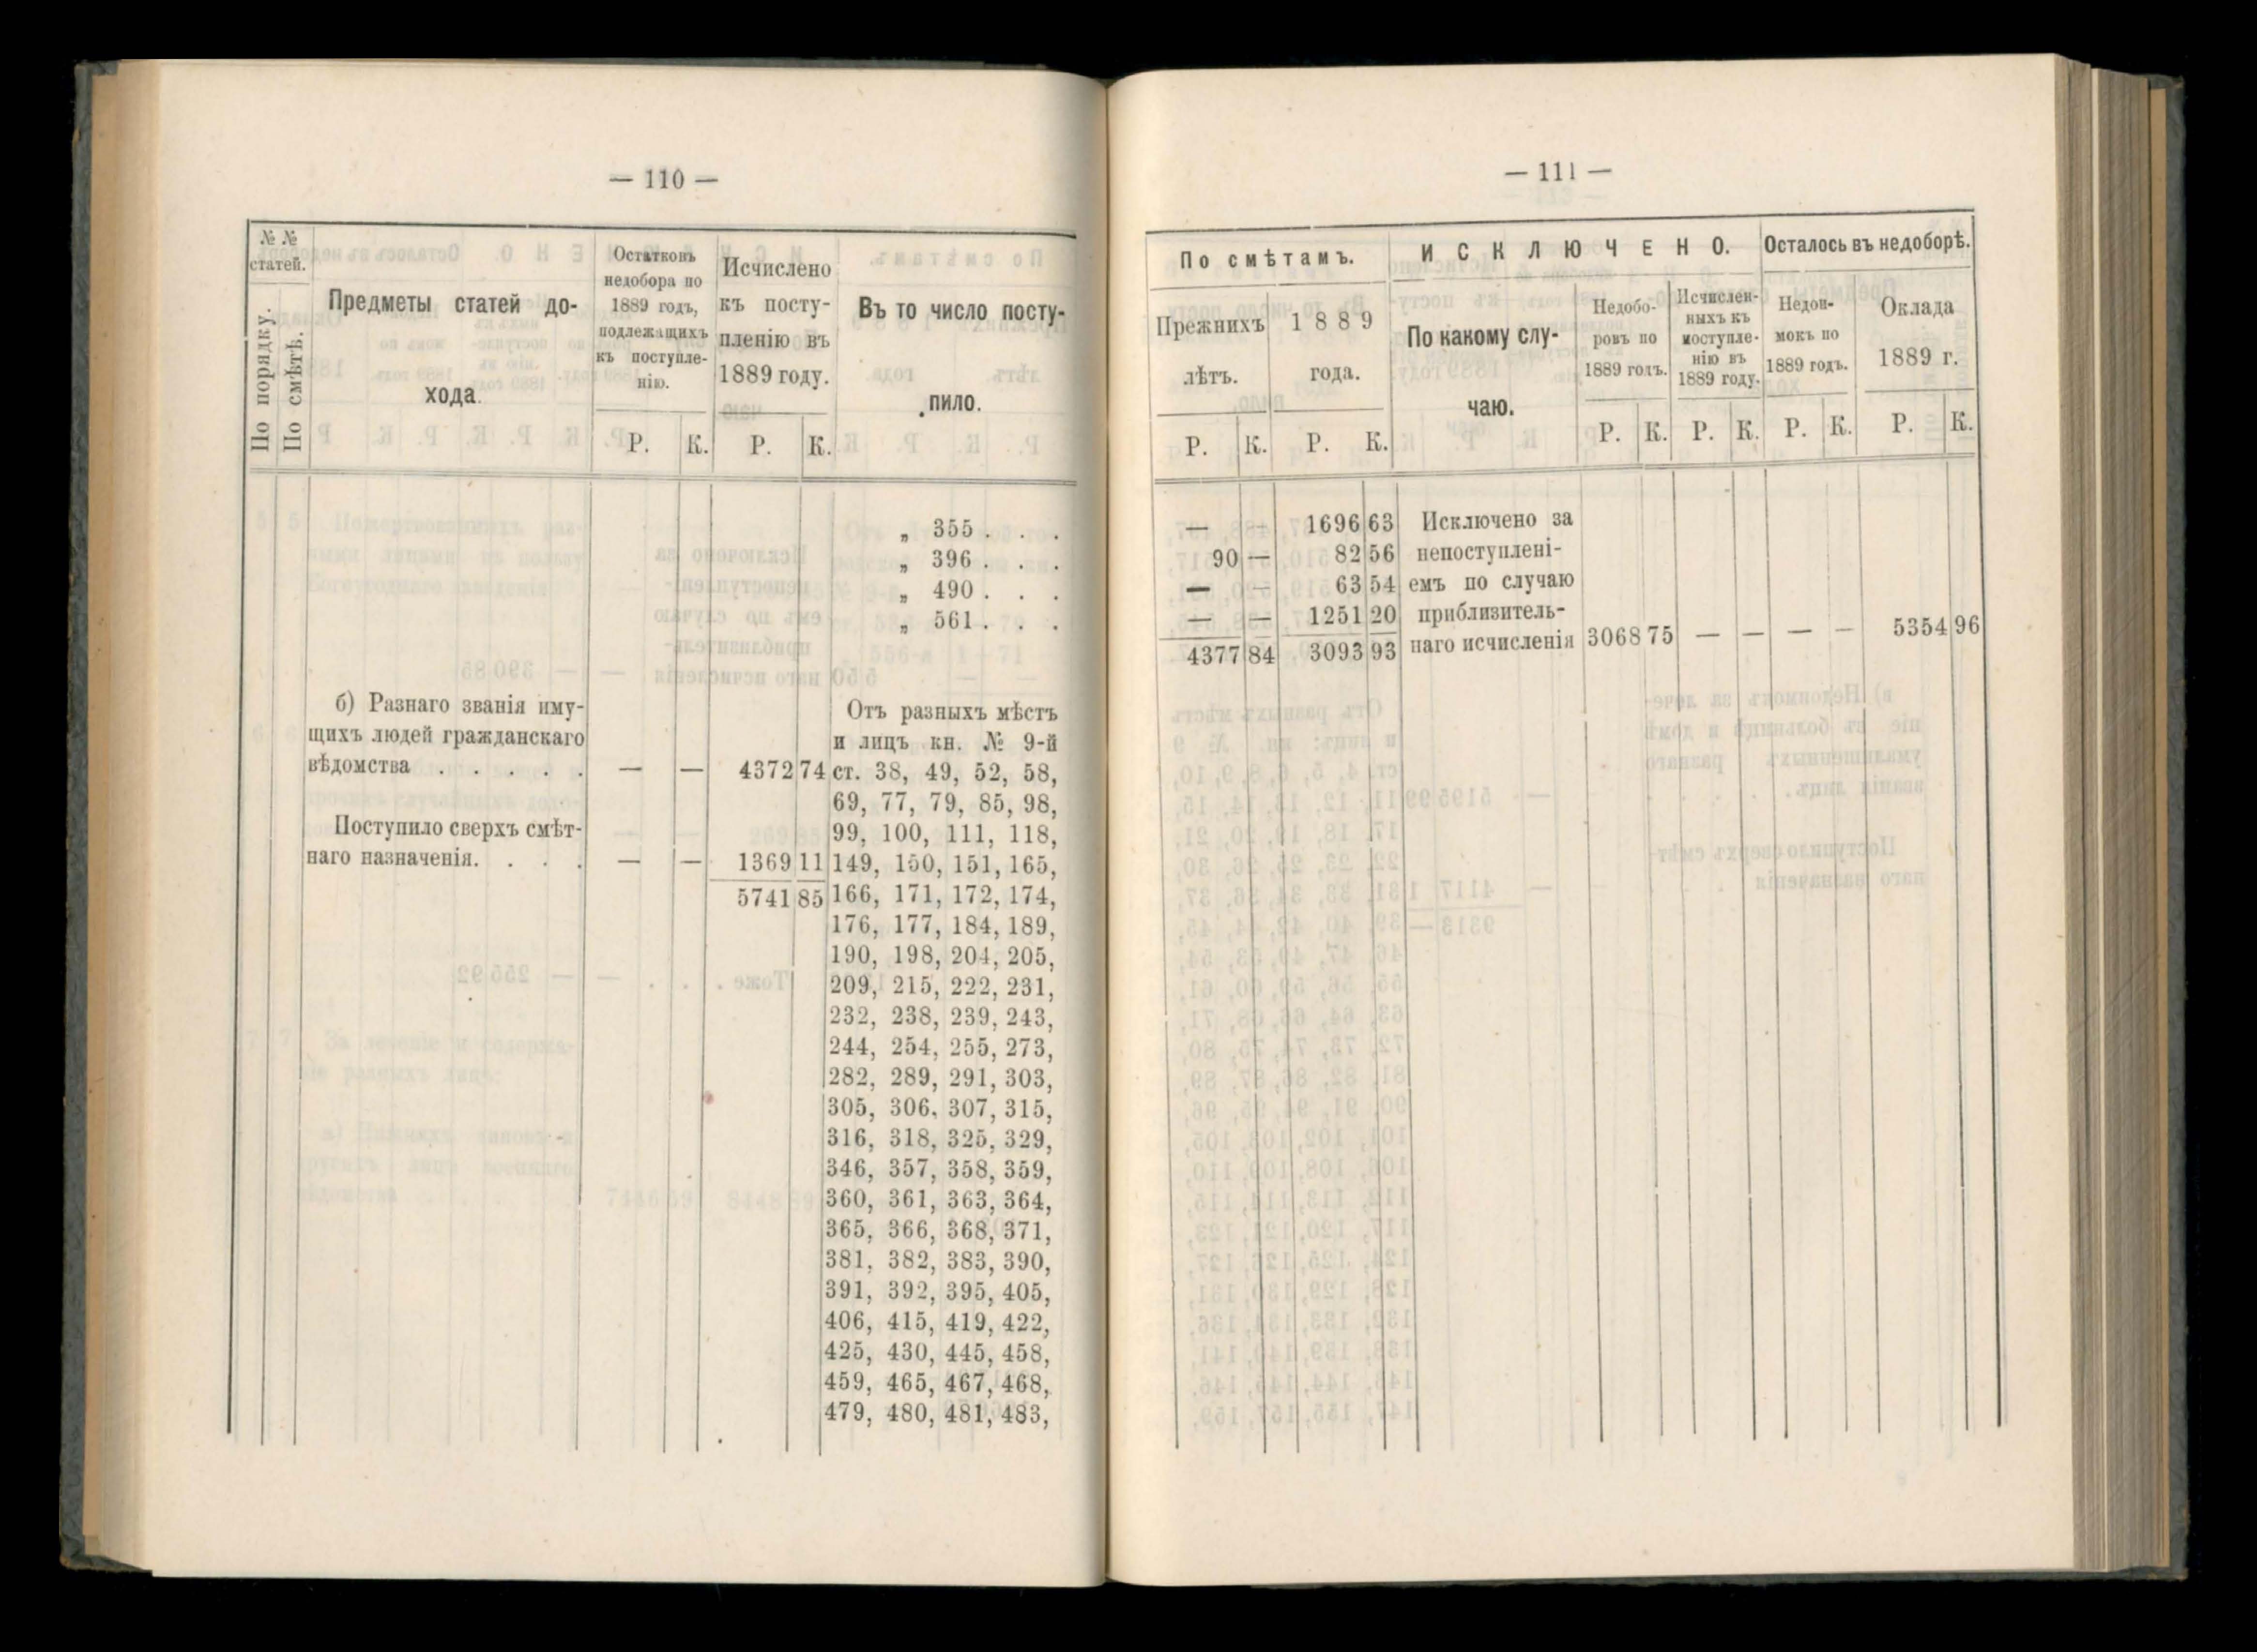 — 110 —
№ № статей.
По порядку.
По смѣтѣ.
Предметы статей до-
хода.
Остатковъ
недобора по
1889 годъ,
подлежащихъ
къ поступле-
нію.
Исчислено
къ посту-
пленію въ
1889 году.
Въ то число посту-
пило.
Р. К. Р. К.
„ 355 . . .
„ 396 . . .
„ 490 . . .
„ 561 . . .
б) Разнаго званія иму-
щихъ людей гражданскаго
вѣдомства . . . . . — — 4372 74
Поступило сверхъ смѣт-
наго назначенія. . . . — — 1369 11
5741 85
Отъ разныхъ мѣстъ
и лицъ кн. № 9-й
ст. 38, 49, 52, 58,
69, 77, 79, 85, 98,
99, 100, 111, 118,
149, 150, 151, 165,
166, 171, 172, 174,
176, 177, 184, 189,
190, 198, 204, 205,
209, 215, 222, 231,
232, 238, 239, 243,
244, 254, 255, 273,
282, 289, 291, 303,
305, 306, 307, 315,
316, 318, 325, 329,
346, 357, 358, 359,
360, 361, 363, 364,
365, 366, 368, 371,
381, 382, 383, 390,
391, 392, 395, 405,
406, 415, 419, 422,
425, 430, 445, 458,
459, 465, 467, 468,
479, 480, 481, 483,
— 111 —
По смѣтамъ.
ИСКЛЮЧЕНО.
Осталось въ недоборѣ.
Прежнихъ
лѣтъ.
1889
года.
По какому слу-
чаю.
Недобо-
ровъ по
1889 годъ.
Исчислен-
ныхъ къ
поступле-
нію въ
1889 году.
Недои-
мокъ по
1889 годъ.
Оклада
1889 г.
Р. К. Р. К. Р. К. Р. К. Р. К. Р. К.
— — 1696 63 Исключено за
90 — 82 56 непоступлені-
— — 63 54 емъ по случаю
— — 1251 20 приблизитель-
4377 84 3093 93 наго исчисленія 3068 75 — — — — 5354 96